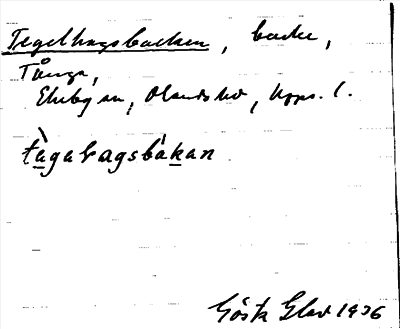 Tegelhagsbacken, backe,
Tånga,
Ekeby sn, Olands hd, Upps. l.
tàgahagsbákan
Gösta Glad 1936